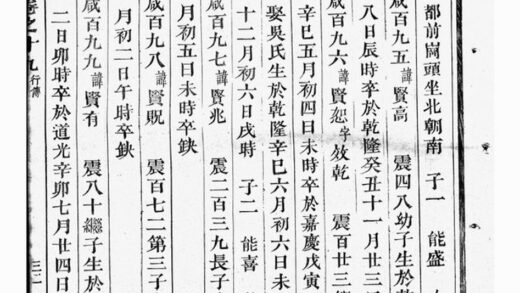 都前崗頭坐北朝南 子一 能盛
咸百九五 諱賢高 震四八幼子生於
八日辰時卒於乾隆癸丑十一月廿三
咸百九六 諱賢恕 字效乾 震百廿三
辛巳五月初四日未時卒於嘉慶戊寅
娶吳氏生於乾隆辛巳六月初六日未
十二月初六日戌時 子二 能喜
咸百九七 諱賢兆 震二百三九長子
月初五日未時卒缺
咸百九八 諱賢貺 震百七二第三子
月初二日午時卒缺
咸百九九 諱賢有 震八十繼子生於
二日卯時卒於道光辛卯七月廿四日
卷之十九 行傳